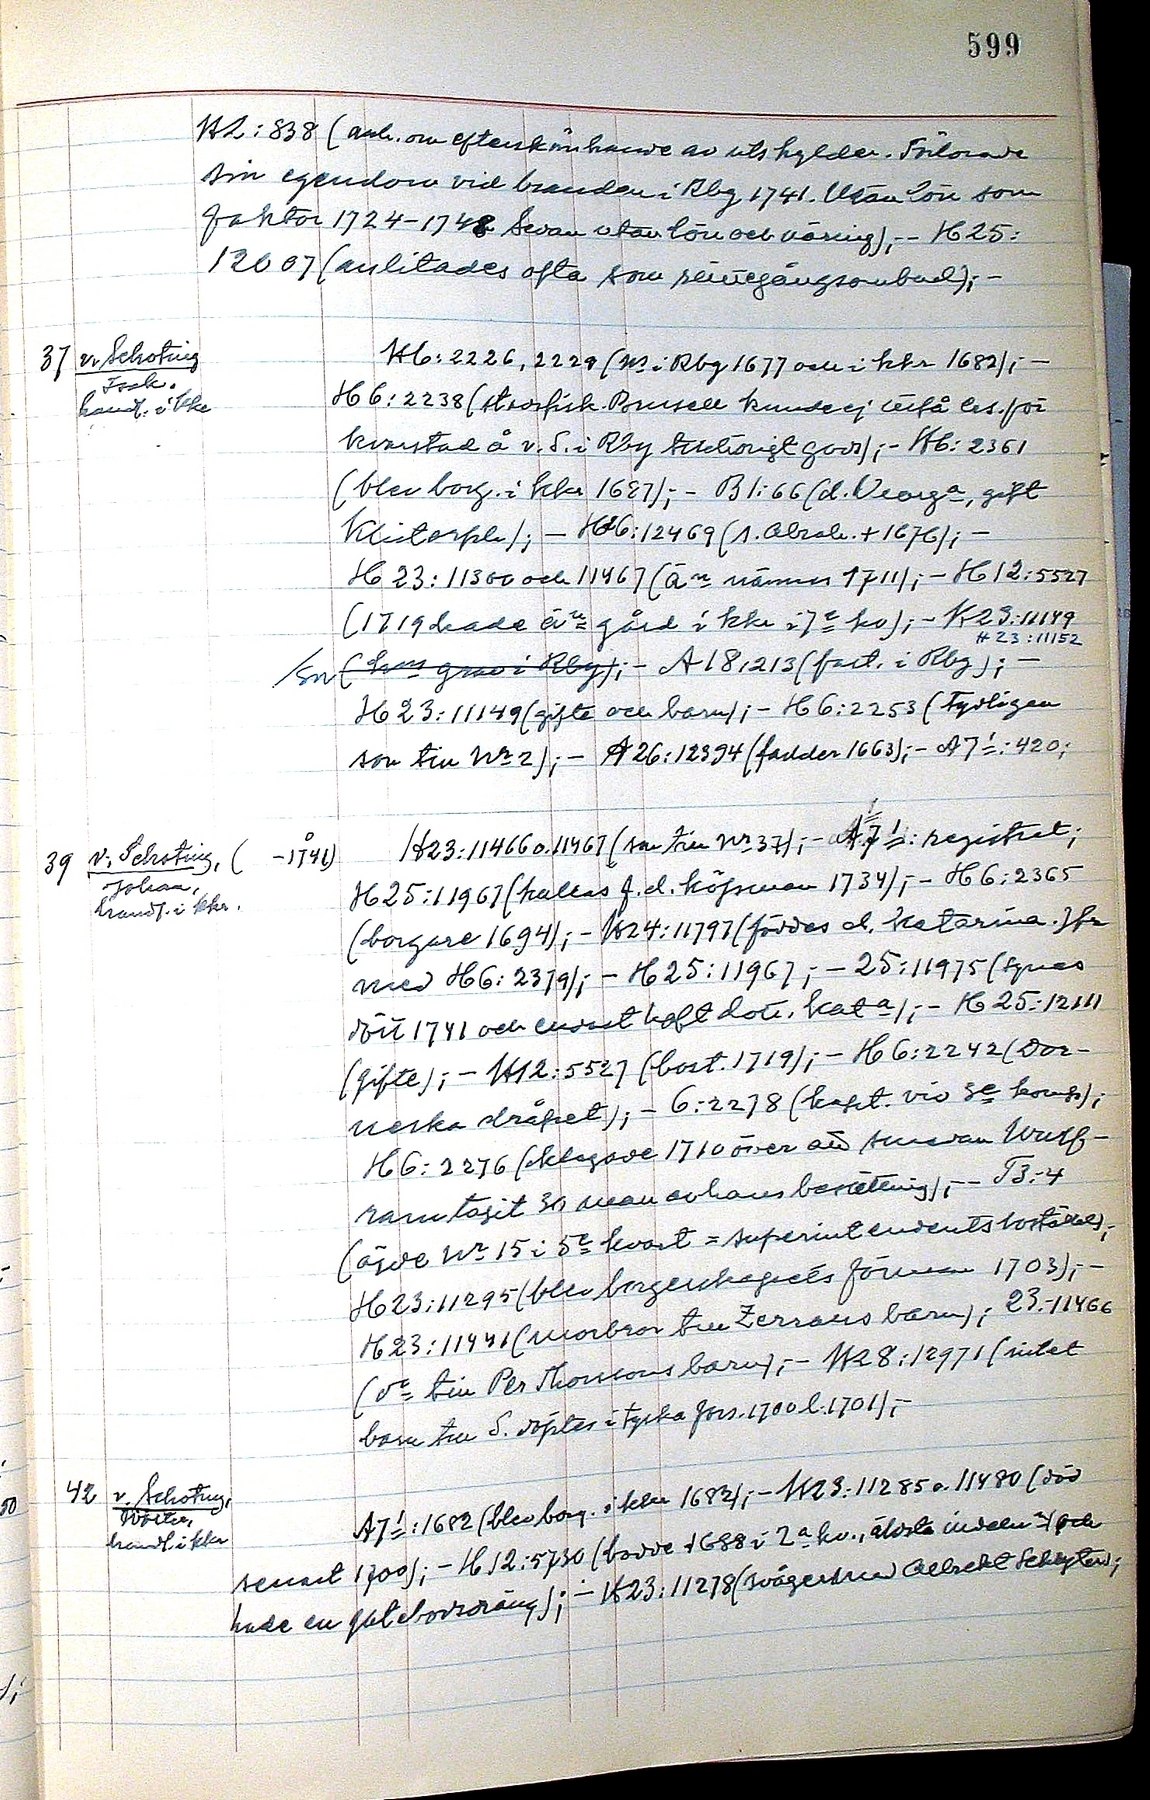 599
H2:838 (anh. om efterskänkande av utskylder. Förlorade
sin egendom vid branden i Rbg 1741. Utan lön som
faktor 1724-1748 Sedan utan lön och näring);-- H25:
12007 (anlitades ofta som rättegångsombud);-
37 v. Schoting
Isak.
handl. i kkr
H6:2226, 2229 (i Rbg 1677 och i kkr 1682);-
H6:2238 ( Brusell kunde ej få för
kvarstad å v. S. i Rbg tillhörigt gods);- H6:2361
(blev borg. i kkr 1687);- B1:66 (d. gift
);- H26:12469 (s. Abrah. + 1676);-
H23:11300 och 11467 (än nämnes 1711);- H12:5527
(1719 hade än gård i kkr i 7e kv);- H23:11149
H23:11152
(hans grav i Rbg);- A18:213 (fast. i Rbg);-
H23:11149 (gifte och barn);- H6:2253 (Tydligen
son till Nr 2);- A26:12394 (fadder 1663);- A7¹:420;
39 v. Schoting, ( -1741)
Johan,
handl. i kkr.
H23:11466 o. 11467 (son till Nr 37);- A7¹: registret;
H25:11967 (kallas f.d. köpman 1734);- H6:2365
(borgare 1694);- H24:11797 (föddes d. Katarina. Jfr
med H6:2379);- H25:11967;- 25:11975 (synes
dött 1741 och endast haft dott. Kat a);- H25:12111
(gifte);- H12:5527 (bost. 1719);- H6:2242 (Dor-
neska dråpet);- 6:2278 (kapt. vid 3e komp);
H6:2276 (klagade 1710 över att Wulf-
ram tagit 30 man av hans besättning);-- T3:4
(ägde Nr 15 i 5e kvart = superintendentsbostället);
H23:11295 (blev borgerskapets förman 1703);-
H23:11441 (morbror till Zerraus barn); 23:11466
(do till Per Thomsons barn);- H28:12971 (intet
barn till S. döptes i tyska förs. 1700 l. 1701);-
42 v. Schoting,
handl. i kkr
A7¹:1682 (blev borg. i kkr 1682);- H23:11285 o. 11480 (död
senast 1700);- H12:5730 (bodde 1688 i 2a kv., och
hade en );- H23:11278 (svåger med Albrekt Schlyter);